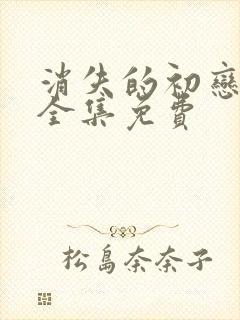 消失的初戀
全集免費
松島奈奈子